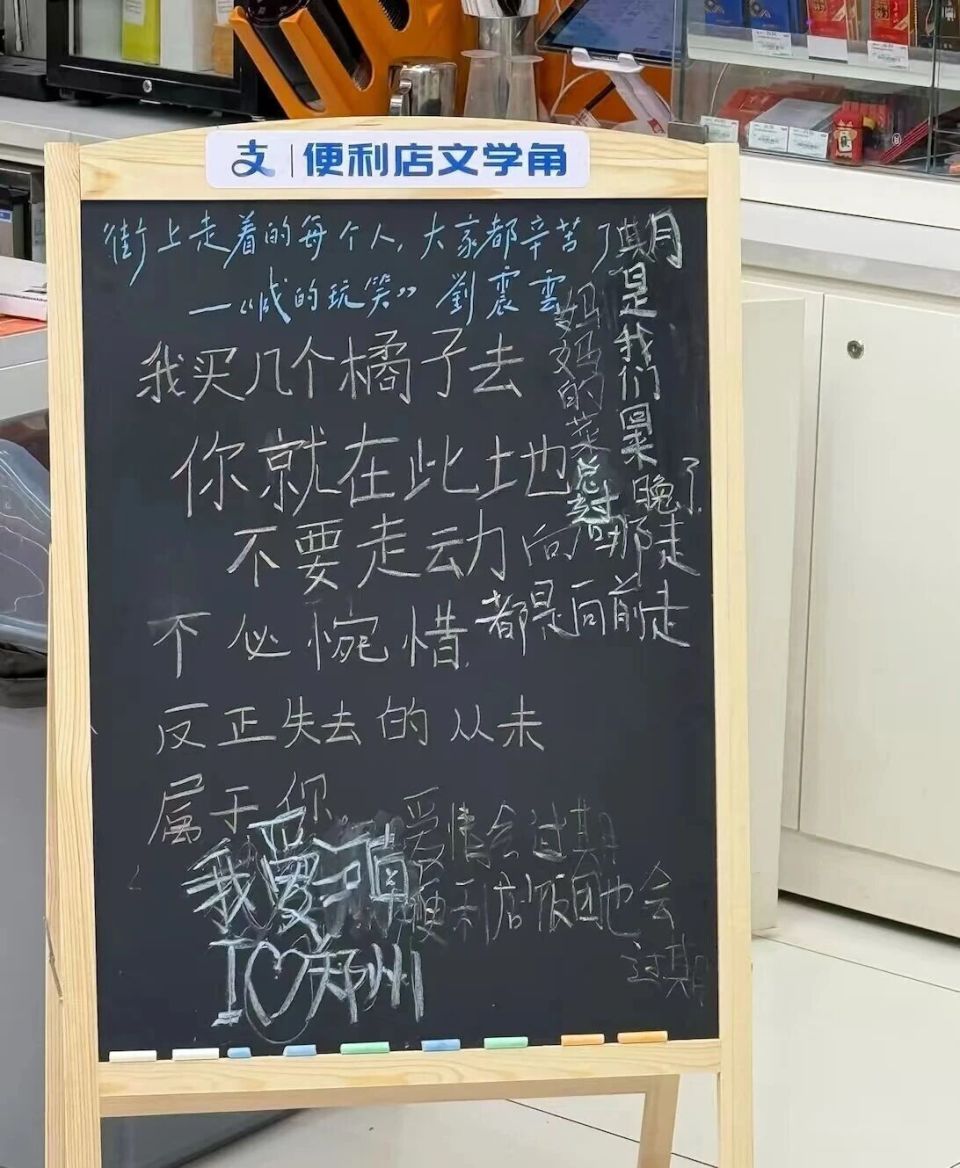 支 | 便利店文学角
街上走着的每个人,大家都辛苦了
—“咸的玩笑” 劉震雲
我买几个橘子去
你就在此地
不要走动
不必惋惜
反正失去的从未
属于你。
期是我们果晚了
妈妈的菜总
向哪走
都是向前走
爱情会过期
便利店饭团也会
过期
我爱
I♡郑州